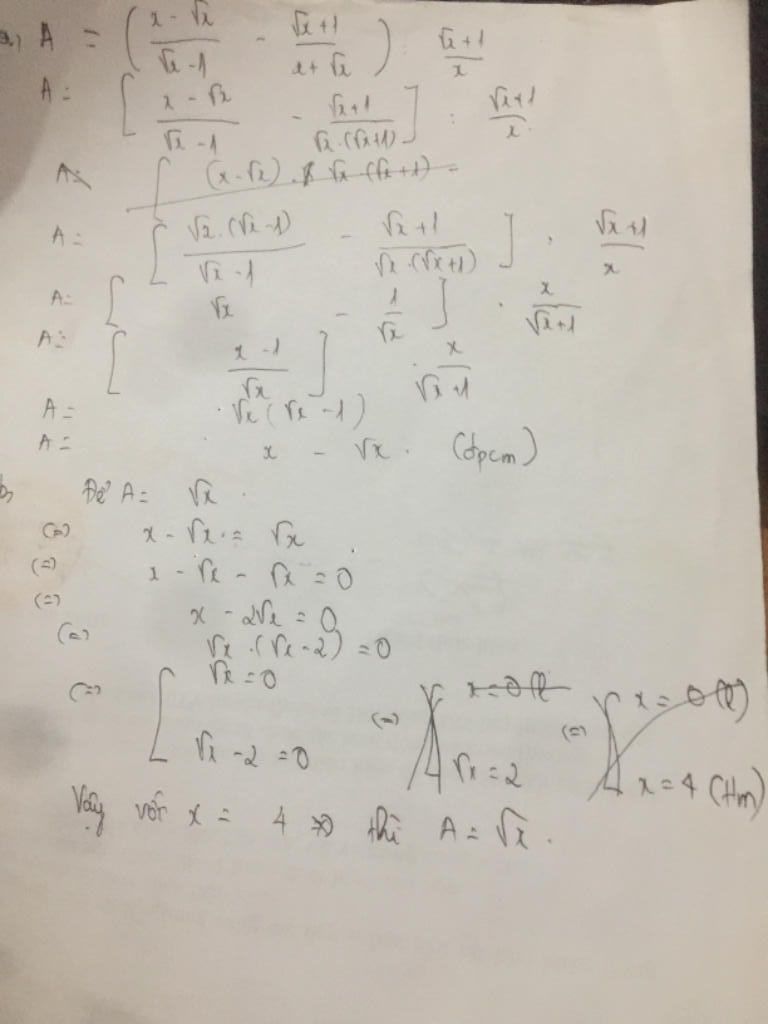 a.) A = ( (x - √x)/(√x - 1) - (√x + 1)/(x + √x) ) : (√x + 1)/x
A = [ (x - √x)/(√x - 1) - (√x + 1)/(√x . (√x + 1)) ] : (√x + 1)/x
A = [ (x - √x) . √x . (√x + 1) -
A = [ (√x . (√x - 1))/(√x - 1) - (√x + 1)/(√x . (√x + 1)) ] : (√x + 1)/x
A = [ √x - 1/√x ] . x/(√x + 1)
A = [ (x - 1)/√x ] . x/(√x + 1)
A = √x (√x - 1)
A = x - √x . (đpcm)
b, Để A = √x .
(=) x - √x = √x
(=) x - √x - √x = 0
(=) x - 2√x = 0
(=) √x . (√x - 2) = 0
(=) [ √x = 0 (=) [ x = 0 (l) (=) [ x = 0 (l)
√x - 2 = 0 √x = 2 x = 4 (tm)
Vậy với x = 4 => thì A = √x .